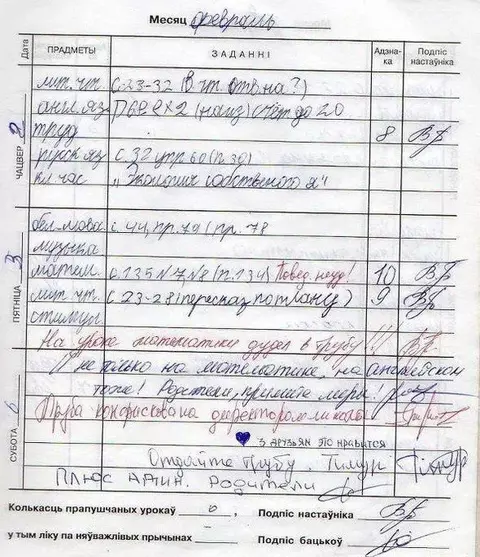 Месяц февраль
Дата ПРЕДМЕТЫ ЗАДАННІ Адзнака Подпіс настаўніка
ЧАЦВЕР 2
лит. чт. с 23-32 (в. чт. отв на?)
англ. яз. (наиз) счёт до 20
труд 8
русск яз с. 32 упр 60 (п. 30)
кл час "Экология собственного я"
ПЯТНІЦА 3
бел. мова с. 44, пр. 79 пр. 78
музыка
матем с. 135 №7, №8 (п. 134) Повед. неуд! 10
лит. чт. с 23-28 (пересказ по плану) 9
стимул
На уроке математики дудел в трубу!!!
И не только на математике, на английском
тоже! Родители, примите меры!
СУБОТА
Труба конфискована директором школы
♥ 3 друзьям это нравится
Отдайте трубу. Тимур
Плюс адин. Родители
Колькасць прапушчаных урокаў 0, Подпіс настаўніка
у тым ліку па няўважлівых прычынах - Подпіс бацькоў